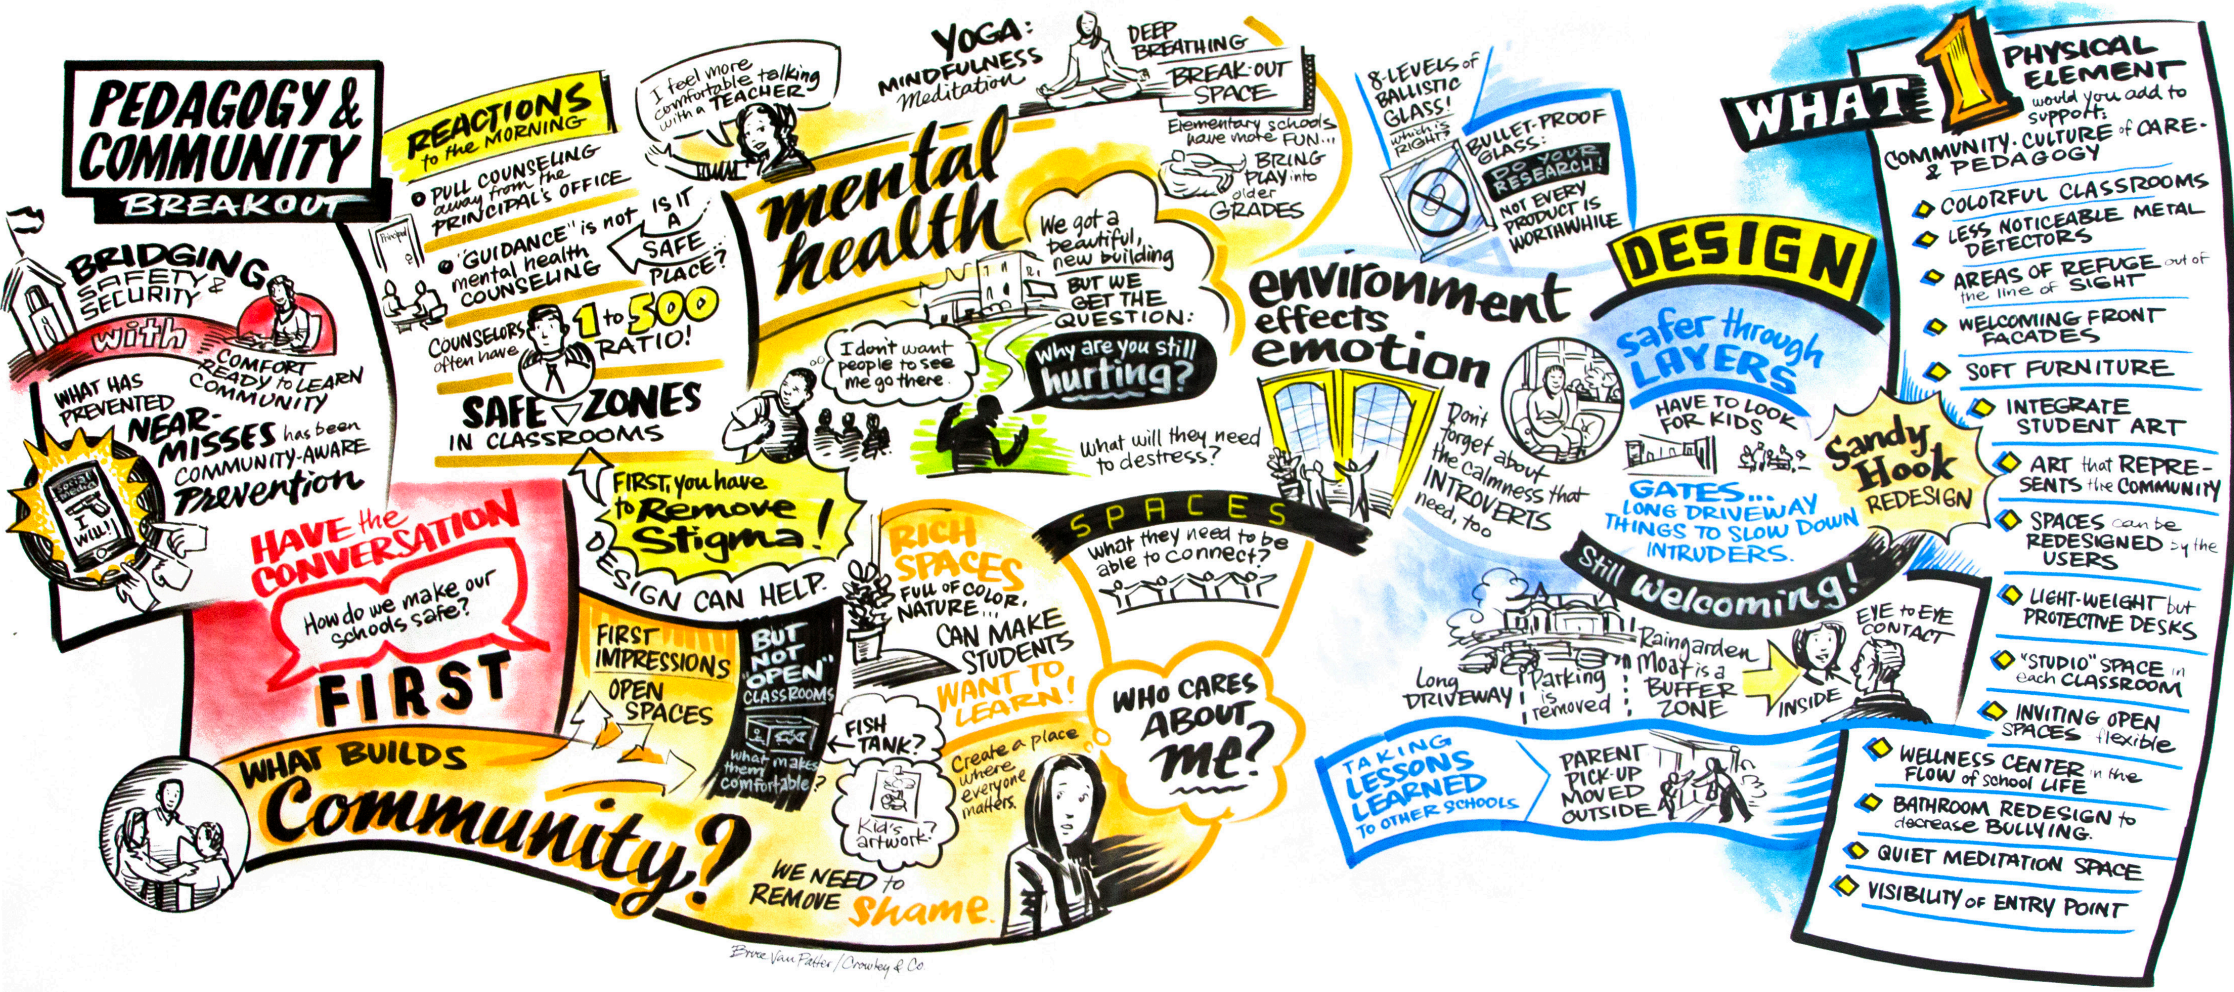 PEDAGOGY &
COMMUNITY
BREAKOUT
BRIDGING
SAFETY &
SECURITY
with
COMFORT
READY to LEARN
COMMUNITY
WHAT HAS
PREVENTED
NEAR-
MISSES has been
COMMUNITY-AWARE
Prevention
Social
media
I
WILL!
HAVE the
CONVERSATION
How do we make our
schools safe?
FIRST
WHAT BUILDS
Community?
REACTIONS
to the MORNING
PULL COUNSELING
away from the
PRINCIPAL'S OFFICE
Principal
"GUIDANCE" is not
mental health
COUNSELING
IS IT
A
SAFE
PLACE?
COUNSELORS
often have
1 to 500
RATIO!
SAFE ZONES
IN CLASSROOMS
FIRST, you have
to Remove
Stigma!
DESIGN CAN HELP.
FIRST
IMPRESSIONS
OPEN
SPACES
BUT
NOT
"OPEN"
CLASSROOMS
what makes
them
comfortable?
FISH
TANK?
Kid's
artwork?
WE NEED to
REMOVE
Shame.
I feel more
comfortable talking
with a TEACHER
YOGA:
MINDFULNESS
Meditation
DEEP
BREATHING
BREAK-OUT
SPACE
Elementary schools
have more FUN...
BRING
PLAY into
older
GRADES
mental
health
We got a
beautiful,
new building
BUT WE
GET THE
QUESTION:
Why are you still
hurting?
I don't want
people to see
me go there.
What will they need
to destress?
RICH
SPACES
FULL OF COLOR,
NATURE...
CAN MAKE
STUDENTS
WANT TO
LEARN!
SPACES
What they need to be
able to connect?
Create a place
where
everyone
matters.
WHO CARES
ABOUT
me?
8-LEVELS of
BALLISTIC
GLASS!
which is
RIGHT?
BULLET-PROOF
GLASS:
DO YOUR
RESEARCH!
NOT EVERY
PRODUCT IS
WORTHWHILE
environment
effects
emotion
Don't
forget about
the calmness that
INTROVERTS
need, too
DESIGN
Safer through
LAYERS
HAVE TO LOOK
FOR KIDS
GATES...
LONG DRIVEWAY
THINGS TO SLOW DOWN
INTRUDERS.
Still Welcoming!
Sandy
Hook
REDESIGN
Long
DRIVEWAY
Parking
is
removed
Raingarden
Moat is a
BUFFER
ZONE
INSIDE
EYE to EYE
CONTACT
TAKING
LESSONS
LEARNED
TO OTHER SCHOOLS
PARENT
PICK-UP
MOVED
OUTSIDE
WHAT 1 PHYSICAL
ELEMENT
would you add to
support:
COMMUNITY · CULTURE of CARE ·
& PEDAGOGY
COLORFUL CLASSROOMS
LESS NOTICEABLE METAL
DETECTORS
AREAS OF REFUGE out of
the line of SIGHT
WELCOMING FRONT
FACADES
SOFT FURNITURE
INTEGRATE
STUDENT ART
ART that REPRE-
SENTS the COMMUNITY
SPACES can be
REDESIGNED by the
USERS
LIGHT-WEIGHT but
PROTECTIVE DESKS
"STUDIO" SPACE in
each CLASSROOM
INVITING OPEN
SPACES - flexible
WELLNESS CENTER in the
FLOW of school LIFE
BATHROOM REDESIGN to
decrease BULLYING.
QUIET MEDITATION SPACE
VISIBILITY OF ENTRY POINT
Bruce Van Patter / Crowley & Co.